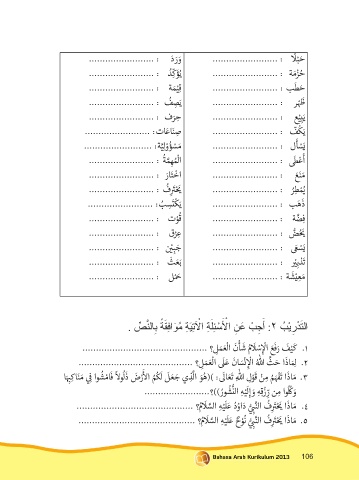 : ........................ وَرَدَ : ........................
حُزْمَة : ........................ يُؤَكِّدُ : ........................
حَطَب : ........................ قِيْمَة : ........................
ظَهْر : ........................ يَصِفُ : ........................
يَبِيْع : ........................ حِرَف : ........................
يَكُفّ : ........................ صِنَاعَات : ........................
يَسْأَل : ........................ مَسْؤُوْلِيَّة : ........................
أَعْطَى : ........................ الْمُهِمَّةُ : ........................
مَنَعَ : ........................ اخْتَارَ : ........................
يُمْطِرُ : ........................ يَحْتَرِفُ : ........................
ذَهَب : ........................ يَكْتَسِبُ : ........................
فِضَّة : ........................ قُوْت : ........................
يَحُضُّ : ........................ عِرْق : ........................
يَسْعَى : ........................ جَبِيْن : ........................
تَدْبِيْر : ........................ : ........................
مَعِيْشَة : ........................ حَمْل : ........................
التَّدْرِيْبُ ٢: أَجِبْ عَنِ الْأَسْئِلَةِ الْآتِيَةِ مُوَافَقَةً بِالنَّصِّ .
١. كَيْفَ رَفَعَ الْإِسْلَامُ شَأْنَ الْعَمَلِ؟ ........................
٢. لِمَاذَا حَثَّ اللهُ الْإِنْسَانَ عَلَى الْعَمَلِ؟ ........................
٣. مَاذَا تَفْهَمُ مِنْ قَوْلِ اللهِ تَعَالَى : ((هُوَ الَّذِي جَعَلَ لَكُمُ الْأَرْضَ ذَلُولًا فَامْشُوا فِي مَنَاكِبِهَا
وَكُلُوا مِن رِّزْقِهِ وَإِلَيْهِ النُّشُورُ))؟........................
٤. مَاذَا يَحْتَرِفُ النَّبِيُّ دَاوُدُ عَلَيْهِ السَّلَامُ؟ ........................
٥. مَاذَا يَحْتَرِفُ النَّبِيُّ نُوْحٌ عَلَيْهِ السَّلَامُ؟ ........................
Bahasa Arab Kurikulum 2013 106